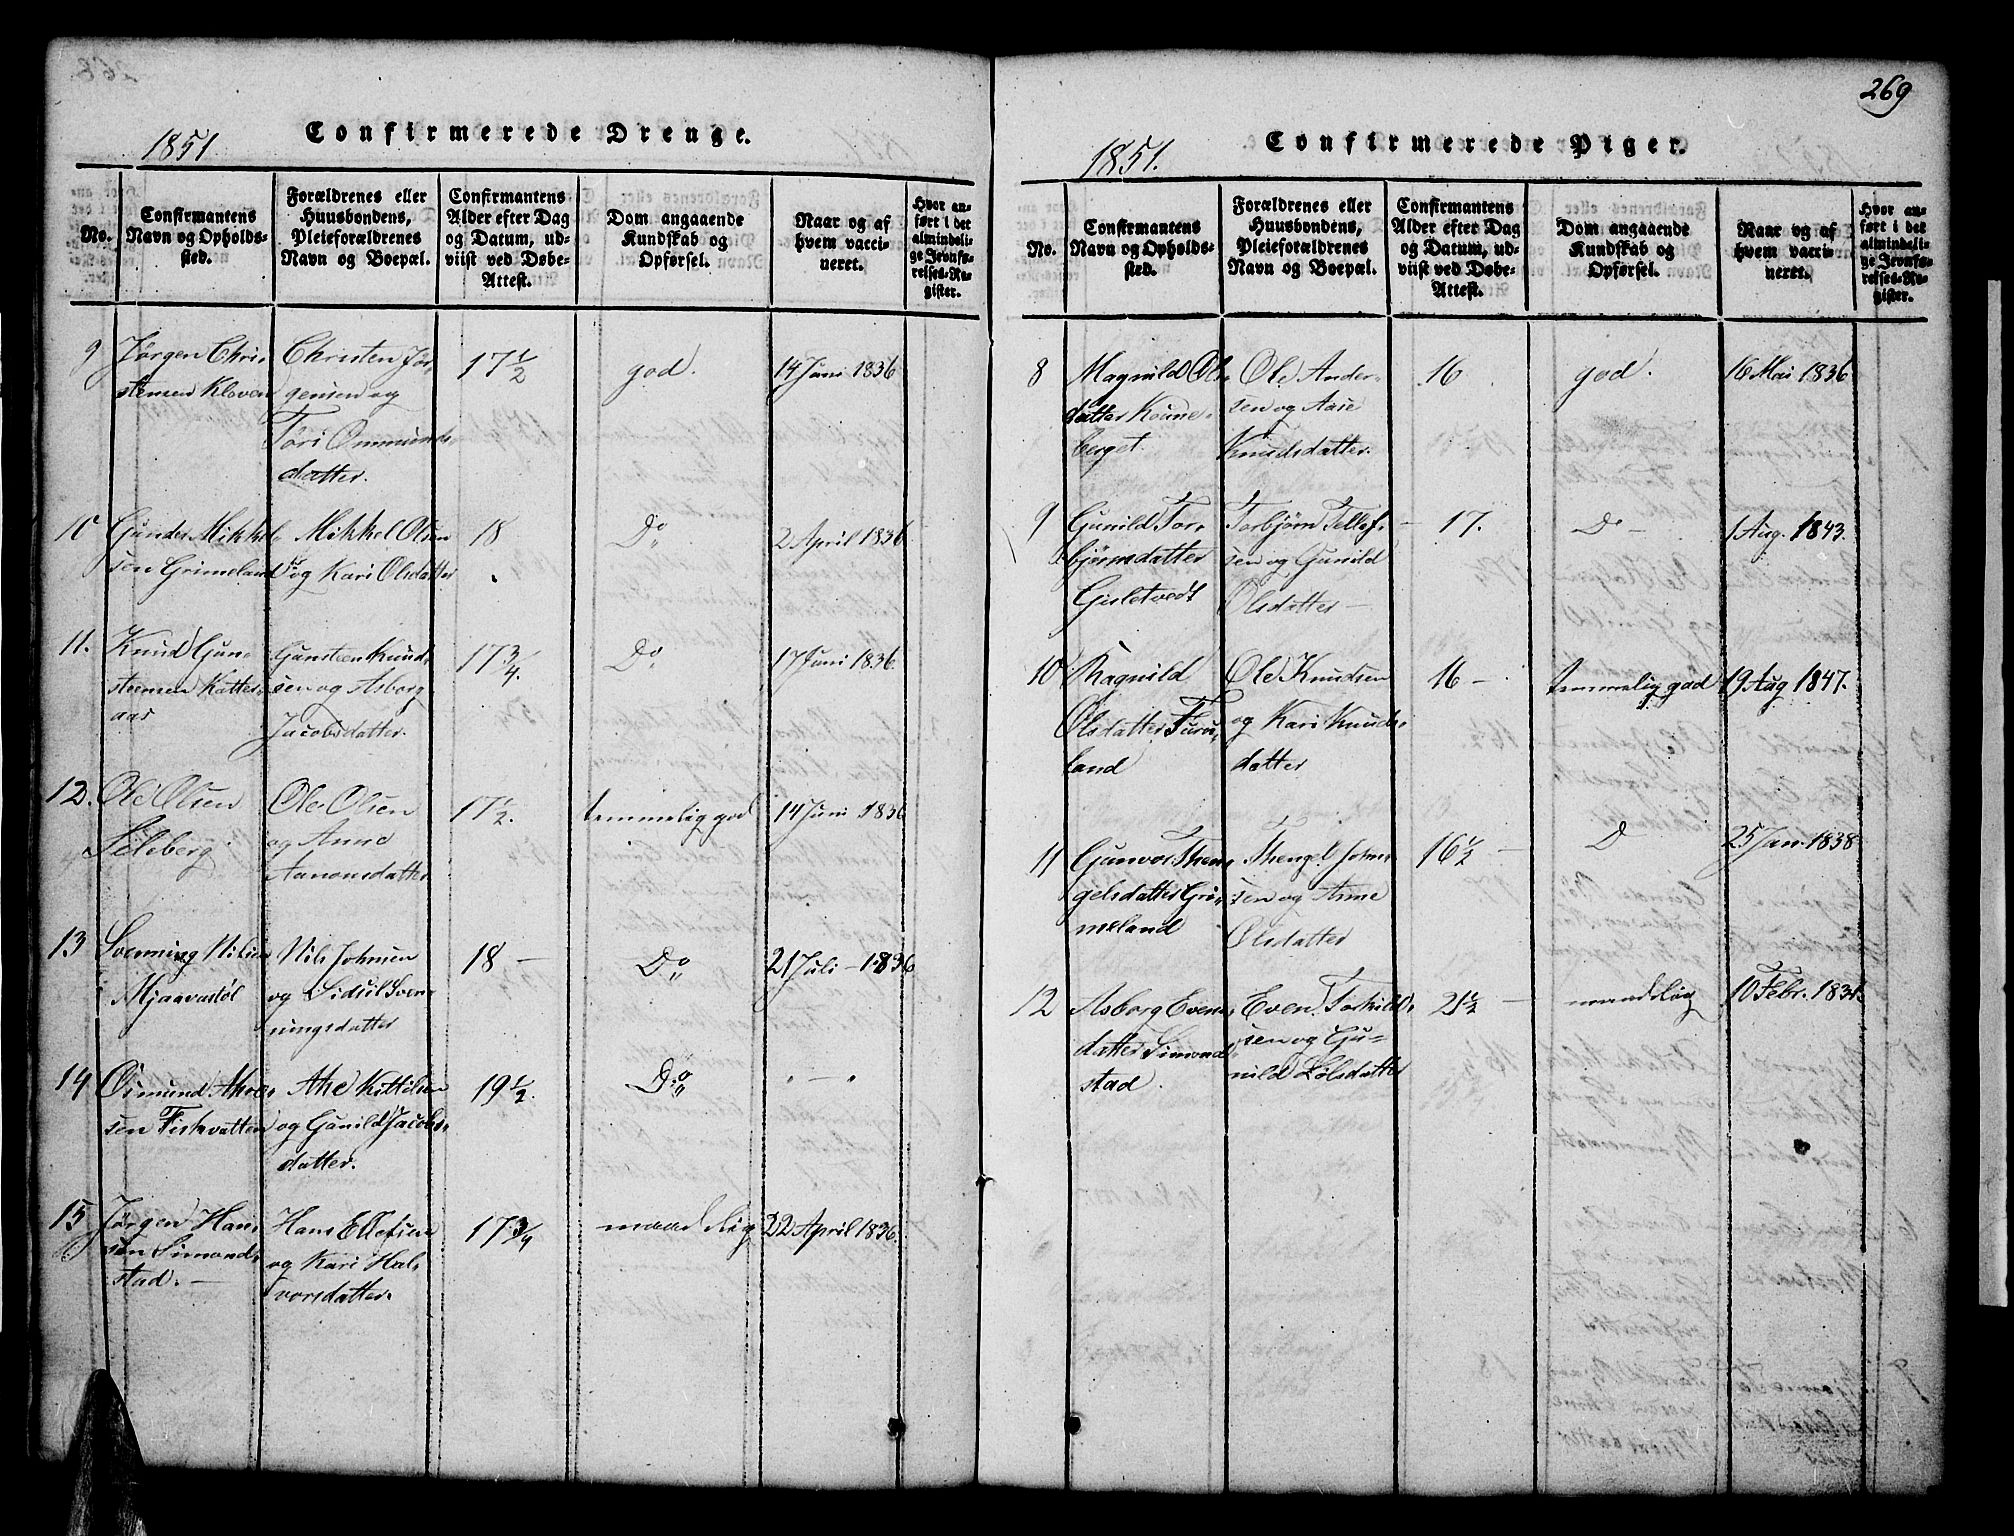 269
Confirmerede Drenge.
1851
No.
Confirmantens Navn og Opholdssted.
Forældrenes eller Huusbondens, Pleieforældrenes Navn og Boepæl.
Confirmantens Alder efter Dag og Datum, udviist ved Døbe-Attest.
Dom angaaende Kundskab og Opførsel.
Naar og af hvem vaccineret.
Hvor anført i det almindelige Jevnførelses-Register.
9
Jørgen Chri-
stensen Kleven
Christen Jør-
gensen og
Tori Ommunds
datter.
17 1/2
god.
14 Juni 1836
10
Gunder Mikkel-
sen Grimeland
Mikkel Olsen
og Kari Olsdatter
18
Do
2 April 1836
11.
Knud Gun-
steensen Katter-
aas
Gunsteen Knud-
sen og Asborg
Jacobsdatter.
17 3/4.
Do
17 Juni 1836
12.
Ole Olsen
Seleberg
Ole Olsen
og Anne
Aanonsdatter
17 1/2.
temmelig god
14 Juni 1836
13
Svenning Nilsen
Mjaavastøl
Nils Johnsen
og Sidsul Sven-
ningsdatter
18 -
Do
21 Juli - 1836
14
Osmund Akse-
sen Fiskvatten
Ake Kittilsen
og Gunild Jacobs-
datter.
19 1/2.
Do
" - "
15
Jørgen Han-
sen Simond-
stad. -
Hans Ellefsen
og Kari Hal-
vorsdatter.
17 3/4
maadelig
22 April 1836.
Confirmerede Piger.
1851.
No.
Confirmantens Navn og Opholdssted.
Forældrenes eller Huusbondens, Pleieforældrenes Navn og Boepæl.
Confirmantens Alder efter Dag og Datum, udviist ved Døbe-Attest.
Dom angaaende Kundskab og Opførsel.
Naar og af hvem vaccineret.
Hvor anført i det almindelige Jevnførelses-Register.
8
Magnild Ols-
datter Koune-
berget.
Ole Ander-
sen og Aase
Knudsdatter.
16
god.
16 Mai 1836
9
Gunild Tor-
bjørnsdatter
Gisletvedt
Torbjørn Tellef-
sen og Gunild
Olsdatter -
17.
Do -
1 Aug. 1843.
10
Ragnild
Olsdatter Furu-
land
Ole Knudsen
og Kari Knuds-
datter
16 -
temmelig god
19 Aug 1847.
11
Gunvor Then-
gelsdatter Gri-
meland
Thengel Johns-
sen og Anne
Olsdatter
16 1/2 -
D
25 Jan. 1838
12
Asborg Evens-
datter Simond
stad.
Even Torkild-
sen og Gu-
nild Lølsdatter
21 1/2 -
maadelig
10 Febr. 1831.